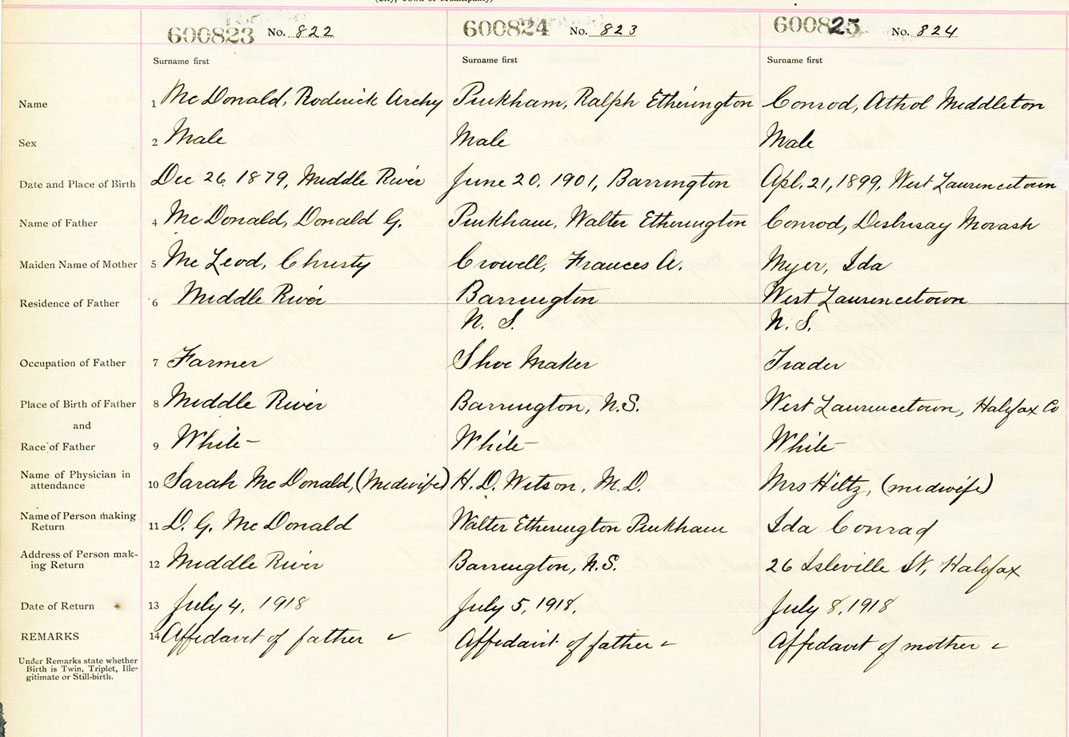 600823 No. 822 600824 No. 823 600825 No. 824
Surname first Surname first Surname first
Name 1 McDonald, Roderick Archy Pinkham, Ralph Etherington Conrod, Athol Middleton
Sex 2 Male Male Male
Date and Place of Birth Dec 26, 1879, Middle River June 20, 1901, Barrington Apl. 21, 1899, West Laurencetown
Name of Father 4 McDonald, Donald G. Pinkham, Walter Etherington Conrod, Desbrisay Morash
Maiden Name of Mother 5 McLeod, Christy Crowell, Frances A. Myer, Ida
Residence of Father 6 Middle River Barrington West Laurencetown
N. S. N. S.
Occupation of Father 7 Farmer Shoe Maker Trader
Place of Birth of Father 8 Middle River Barrington, N.S. West Laurencetown, Halifax Co
and
Race of Father 9 White White White
Name of Physician in
attendance 10 Sarah McDonald, (Midwife) H. D. M.D. Mrs Hiltz, (midwife)
Name of Person making
Return 11 D. G. McDonald Walter Etherington Pinkham Ida Conrad
Address of Person mak-
ing Return 12 Middle River Barrington, N.S. 26 Isleville St, Halifax
Date of Return 13 July 4, 1918 July 5, 1918. July 8, 1918
REMARKS 14 Affidavit of father Affidavit of father Affidavit of mother
Under Remarks state whether
Birth is Twin, Triplet, Ille-
gitimate or Still-birth.